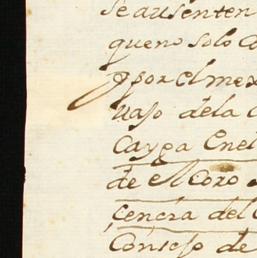 se ausenten
queno solo Co
por el mex
uajo dela C
Cayga Enel
de el Coro
çencia del C
Consejo de